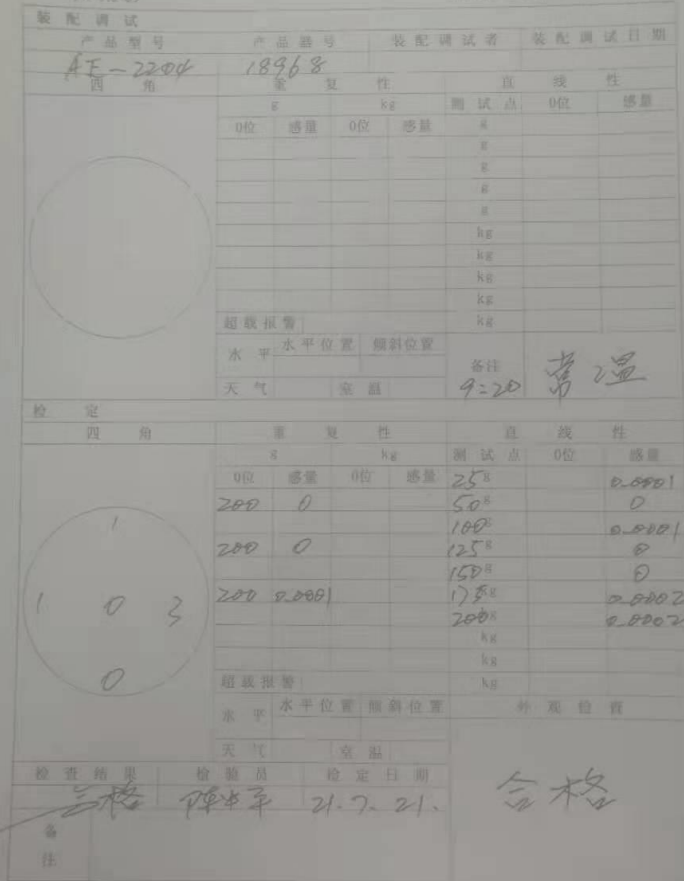 装配调试
产品型号 产品器号 装配调试者 装配调试日期
AE-2204 18968
四角 重复性 直线性
g kg 测试点 0位 感量
0位 感量 0位 感量 g
g
g
g
g
kg
kg
kg
kg
超载报警 kg
水平 水平位置 倾斜位置
备注
天气 室温 9=20 常温
检定
四角 重复性 直线性
g kg 测试点 0位 感量
0位 感量 0位 感量 25g 0.0001
200 0 50g 0
1 100g 0.0001
200 0 125g 0
150g 0
1 0 3 200 0.0001 175g 0.0002
200g 0.0002
kg
kg
0
超载报警 kg
水平 水平位置 倾斜位置 外观检查
天气 室温
检查结果 检验员 检定日期
合格 21.7.21. 合格
备注